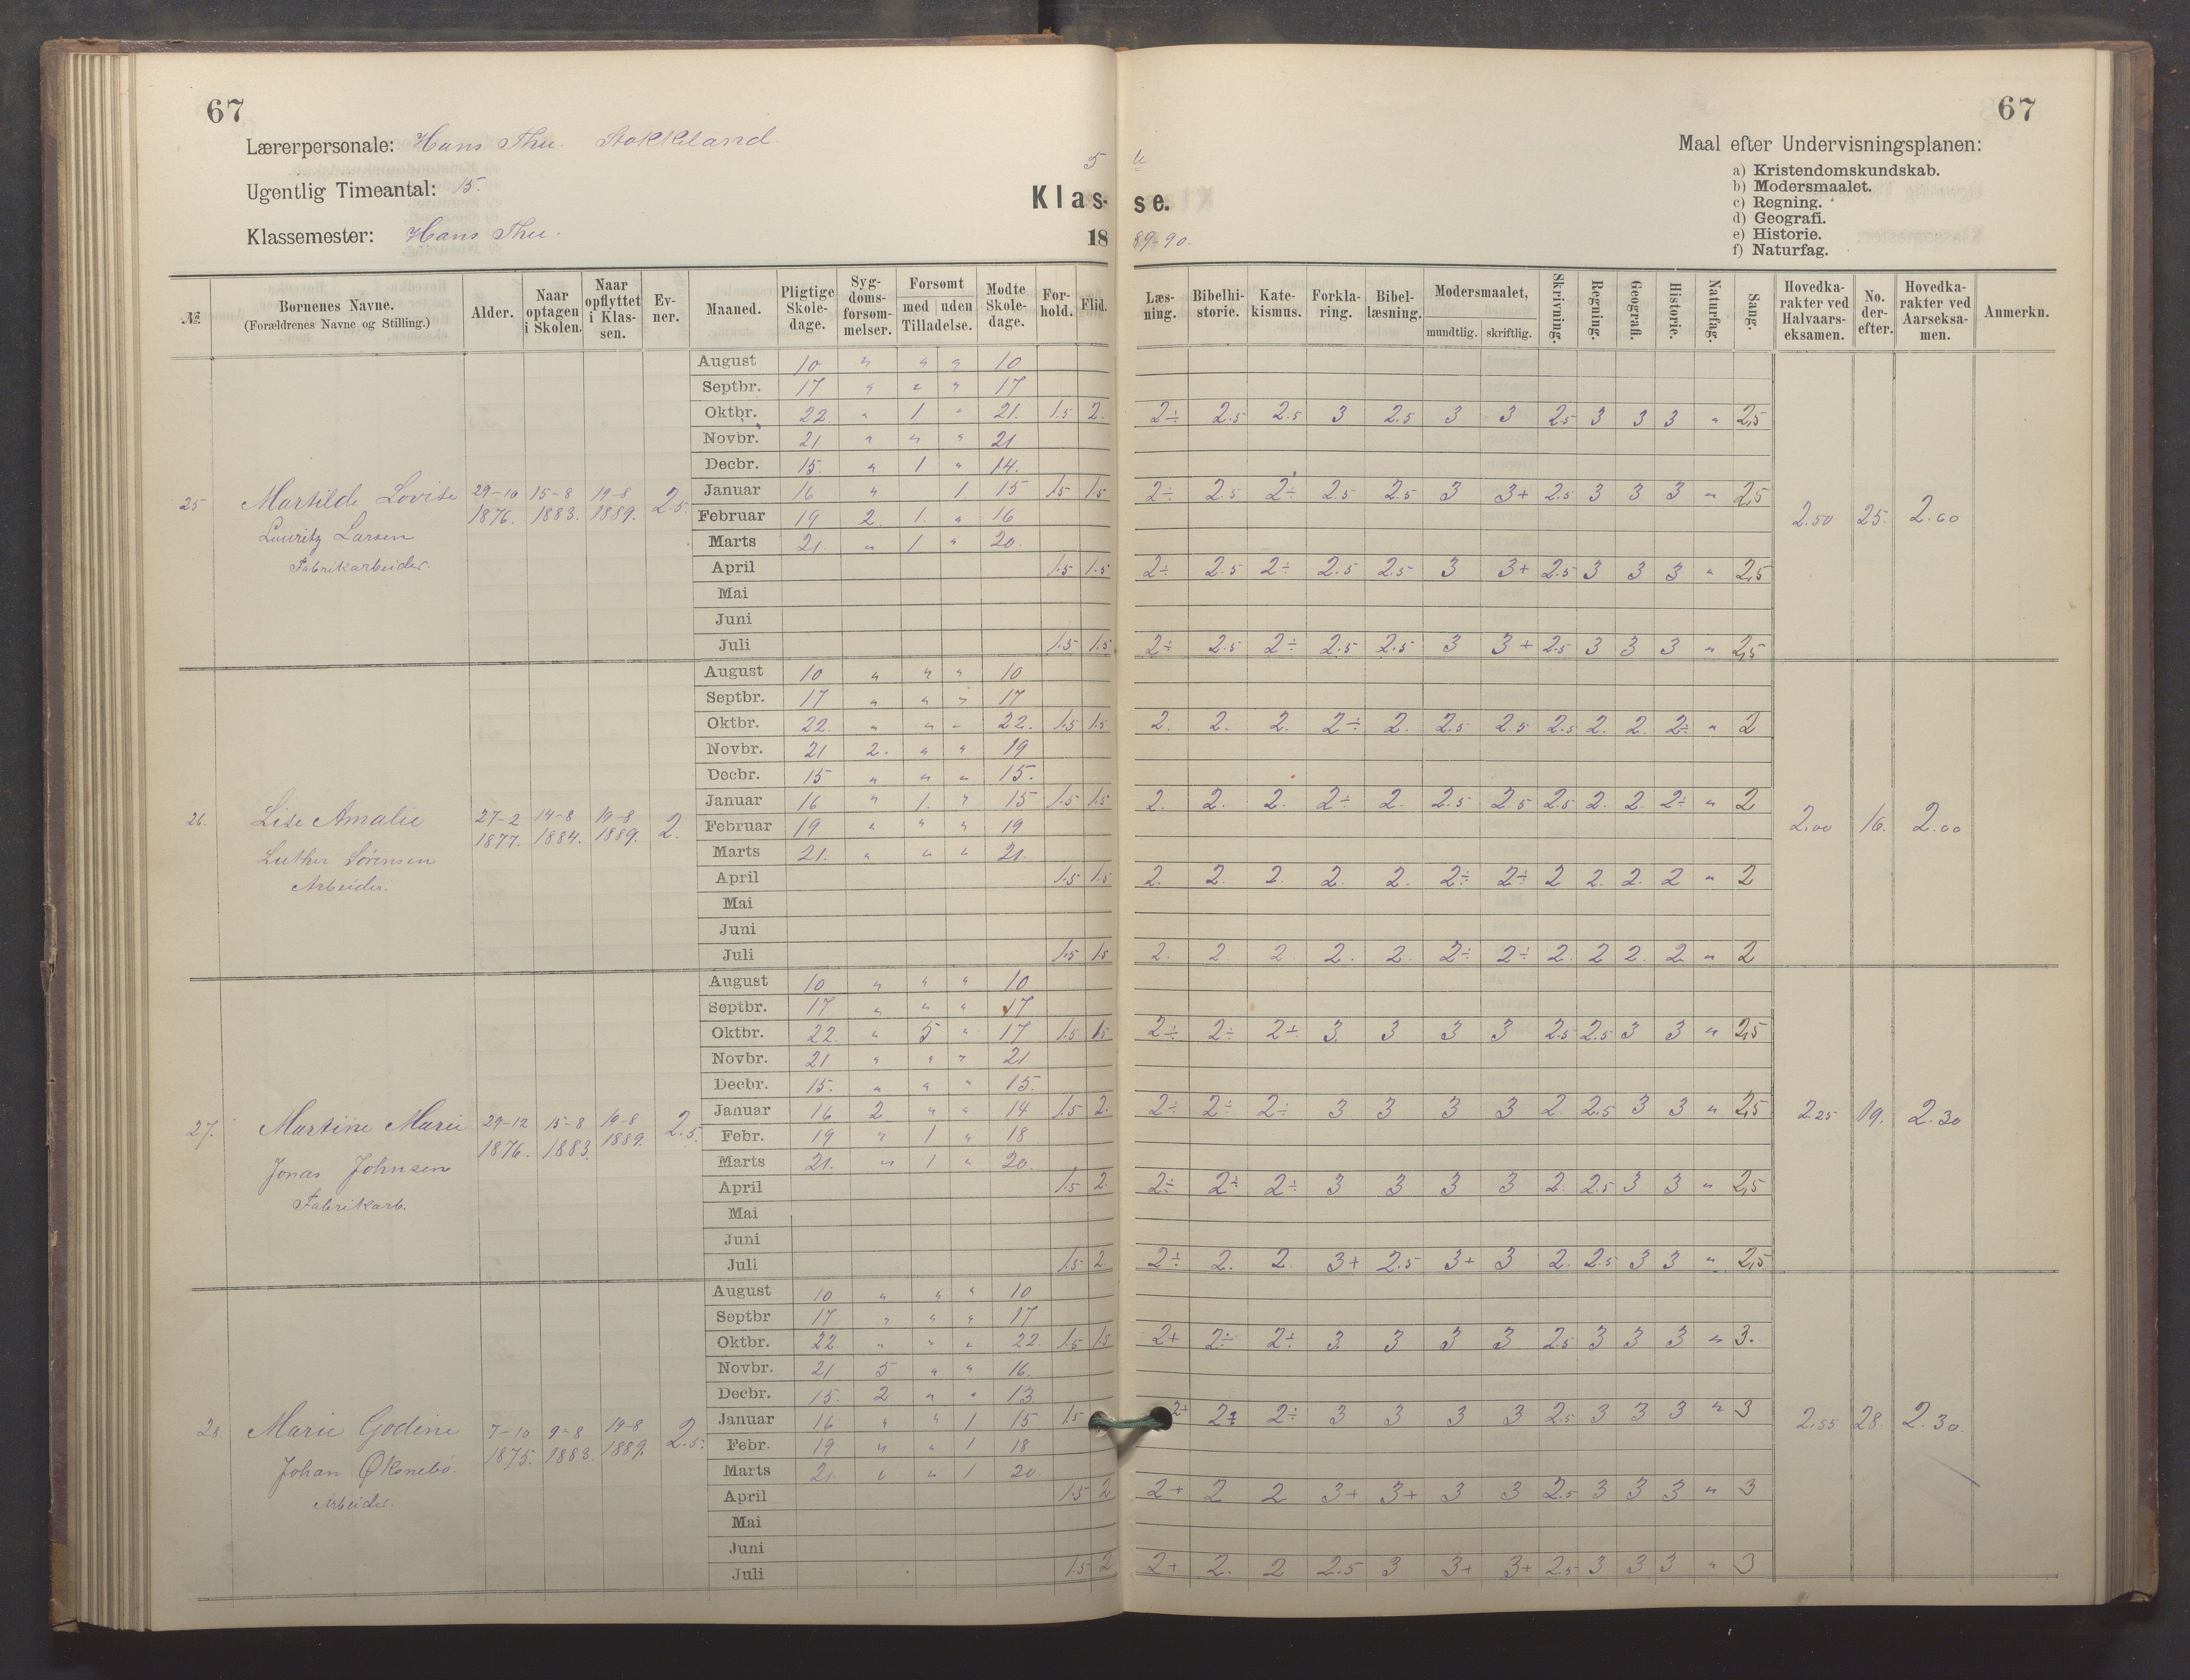 67
67
Lærerpersonale: Hans Thu. Stokkeland.
Ugentlig Timeantal: 15.
Klassemester: Hans Thu.
5
Klas- se.
18 89-90.
Maal efter Undervisningsplanen:
a) Kristendomskundskab.
b) Modersmaalet.
c) Regning.
d) Geografi.
e) Historie.
f) Naturfag.
№ | Børnenes Navne. (Forældrenes Navne og Stilling.) | Alder. | Naar optagen i Skolen. | Naar opflyttet i Klassen. | Evner. | Maaned. | Pligtige Skoledage. | Sygdomsforsømmelser. | Forsømt med Tilladelse. | uden Tilladelse. | Mødte Skoledage. | Forhold. | Flid. | Læsning. | Bibelhistorie. | Katekismus. | Forklaring. | Bibellæsning. | Modersmaalet, mundtlig. | skriftlig. | Skrivning. | Regning. | Geografi. | Historie. | Naturfag. | Sang. | Hovedkarakter ved Halvaarseksamen. | No. derefter. | Hovedkarakter ved Aarseksamen. | Anmerkn.
25 Martilde Lovise 29-10 1876. 15-8 1883. 19-8 1889. 2.5. 2.50 25. 2.60
Lauritz Larsen
Fabrikarbeider.
August 10 " " " 10
Septbr. 17 " " " 17
Oktbr. 22 " 1 " 21. 1.5 2. 2÷ 2.5 2.5 3 2.5 3 3 2.5 3 3 3 " 2,5
Novbr. 21 " " " 21
Decbr. 15. " 1 " 14.
Januar 16 " 1 15 1.5 1.5 2÷ 2.5 2÷ 2.5 2.5 3 3+ 2.5 3 3 3 " 2,5
Februar 19 2. 1. " 16
Marts 21. " 1 " 20.
April 1.5 1.5 2÷ 2.5 2÷ 2.5 2.5 3 3+ 2.5 3 3 3 " 2,5
Mai
Juni
Juli 1.5 1.5 2÷ 2.5 2÷ 2.5 2.5 3 3+ 2.5 3 3 3 " 2,5
26. Lise Amalie 27-2 1877. 14-8 1884. 19-8 1889. 2. 2.00 16. 2.00
Luther Sørensen
Arbeider.
August 10 " " " 10
Septbr. 17 " " " 17
Oktbr. 22. " " " 22. 1.5 1.5 2. 2. 2. 2÷ 2. 2.5 2.5 2.5 2. 2. 2÷ " 2
Novbr. 21 2. " " 19
Decbr. 15 " " " 15.
Januar 16 " 1. " 15 1.5 1.5 2. 2. 2. 2÷ 2. 2.5 2.5 2.5 2. 2. 2÷ " 2
Februar 19 " " " 19
Marts 21. " " " 21.
April 1.5 1.5 2. 2. 2. 2. 2. 2÷ 2÷ 2 2. 2. 2 " 2
Mai
Juni
Juli 1.5 1.5 2. 2 2 2. 2. 2÷ 2÷ 2. 2 2. 2 " 2
27. Martine Marie 29-12 1876. 15-8 1883. 19-8 1889. 2.5. 2.25 19. 2.30
Jonas Johnsen
Fabrikarb.
August 10 " " " 10
Septbr. 17 " " " 17
Oktbr. 22. " 5 " 17 1.5 1.5 2÷ 2÷ 2÷ 3. 3 3 3 2.5 2.5 3 3 " 2,5
Novbr. 21 " " " 21
Decbr. 15. " " " 15.
Januar 16 2 " " 14 1.5 2. 2÷ 2÷ 2÷ 3 3 3 3 2. 2.5 3 3 " 2,5
Febr. 19 " 1 " 18
Marts 21. " 1 " 20.
April 1.5 2. 2÷ 2÷ 2÷ 3 3 3 3 2. 2.5 3 3 " 2,5
Mai
Juni
Juli 1.5 2. 2÷ 2. 2. 3+ 2.5 3+ 3 2. 2.5 3 3 " 2,5
28. Marie Godine 7-10 1875. 9-8 1883. 19-8 1889. 2.5. 2.55 28. 2.30.
Johan
Arbeider.
August 10 " " " 10
Septbr 17 " " " 17
Oktbr. 22. " " " 22. 1.5 1.5 2+ 2÷ 2÷ 3. 3 3 3 2.5 3 3 3 " 3.
Novbr. 21 5 " " 16.
Decbr. 15. 2 " " 13
Januar 16 " " 1 15 1.5 2+ 2÷ 2÷ 3 3 3 3 2.5 3 3 3 " 3
Febr. 19 " " 1 18
Marts 21. " " 1 20.
April 1.5 2 2+ 2 2 3+ 3+ 3 3 2.5 3 3 3 " 3
Mai
Juni
Juli 1.5 2 2+ 2. 2 2.5 3 3+ 3+ 2.5 3 3 3 " 3